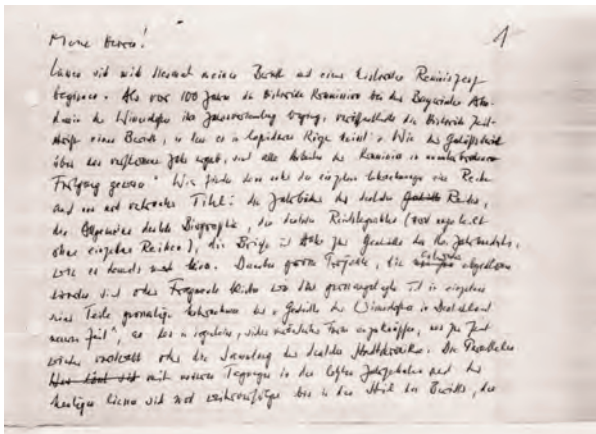 Meine Herren! 1
Lassen Sie mich diesmal meinen Bericht mit einer historischen Reminiszenz
beginnen. Als vor 100 Jahren die Historische Kommission bei der Bayerischen Aka-
demie der Wissenschaften ihre Jahresversammlung beging, veröffentlichte die Historische Zeit-
schrift einen Bericht, in dem es in lapidarer Kürze heisst: "Wie der Geschäftsbericht
über das verflossene Jahr ergab, sind alle Arbeiten der Kommission in ununterbrochenem
Fortgang gewesen". Wir finden dann unter den einzelnen Unternehmungen eine Reihe
auch uns noch vertrauter Titel: die Jahrbücher des deutschen Reiches,
die Allgemeine deutsche Biographie, die deutschen Reichstagsakten (noch ungeteilt
ohne einzelne Reihen), die Briefe und Akten zur Geschichte des 16. Jahrhunderts,
wie es damals noch hiess. Daneben Projekte, die abgeschlossen
worden sind oder Fragmente blieben wie das grossangelegte und in einzelnen
seiner Teile grossartige Unternehmen der "Geschichte der Wissenschaften in Deutschland
neuere Zeit", an das in irgendeiner, sicher veränderter Form anzuknüpfen, uns zur Zeit
wieder vorschwebt oder die Sammlung der deutschen Städtechroniken. Die Parallelen
mit unseren Tagungen in den letzten Jahrzehnten und der
heutigen liessen sich noch weiterverfolgen bis in den Stil des Berichts, der